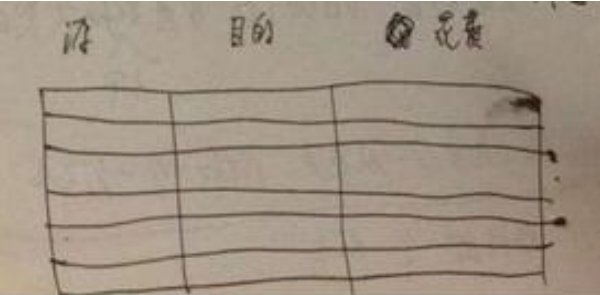 游 目的 花费